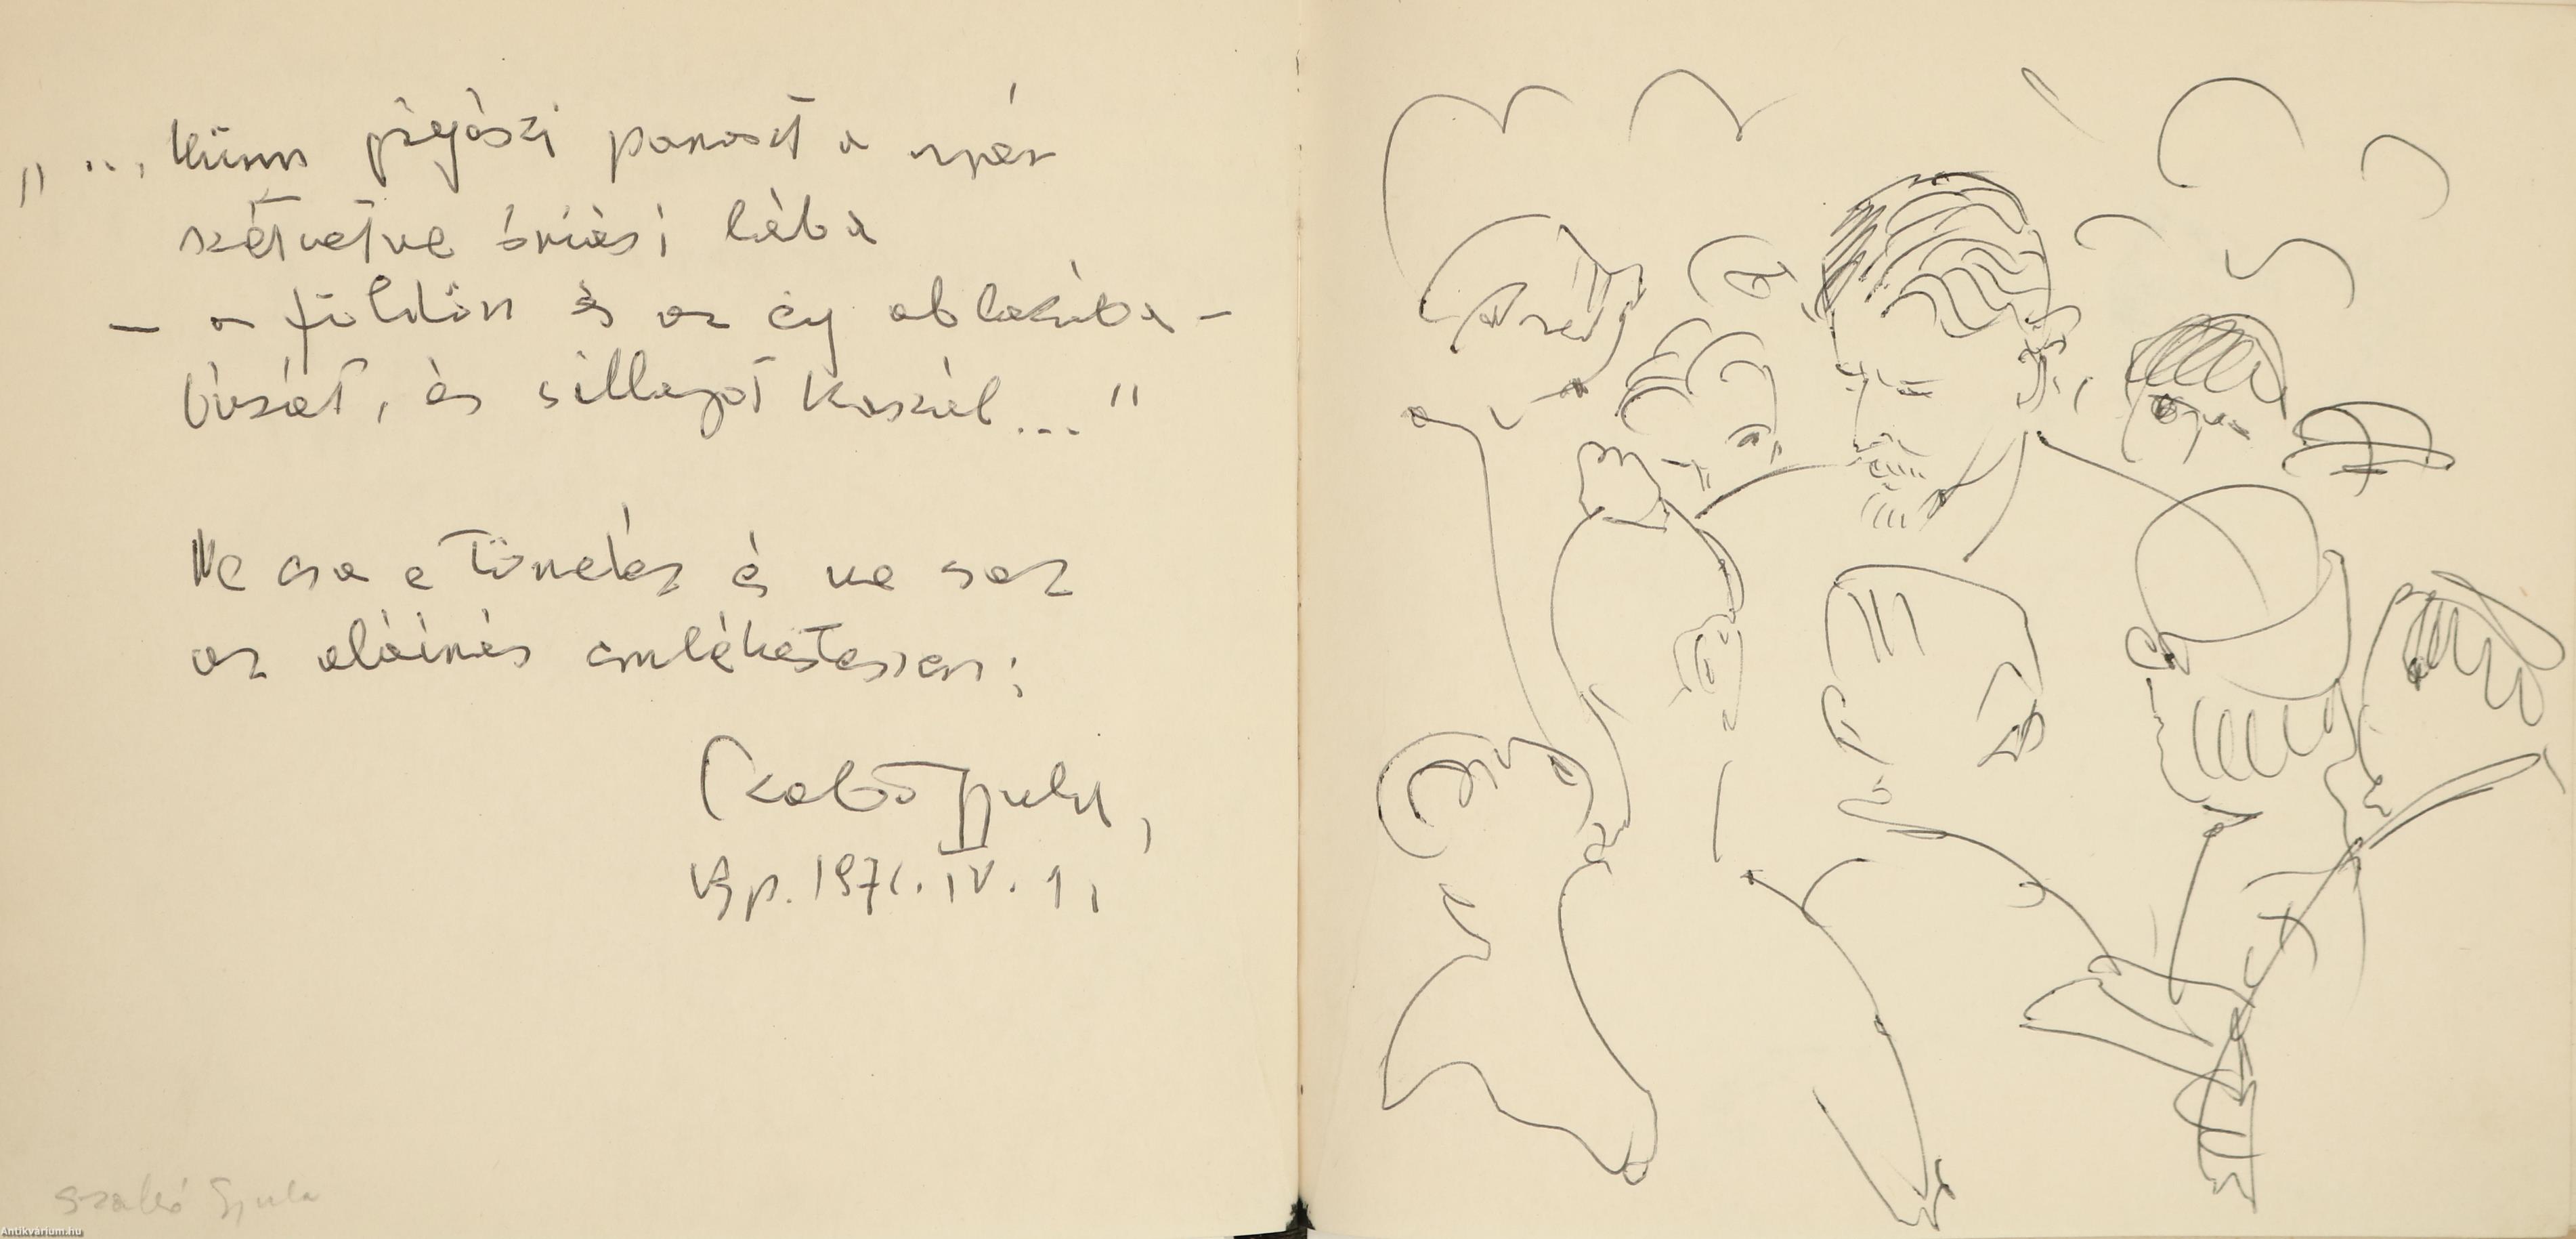 „ ... künn pipázó paraszt a nyár
szétvetve óriási lába
– a földön és az ég ablakába –
búzát, és csillagot kaszál ... "
Ne csa e tömelés és ne csak
az aláírás emlékeztessen:
Szabó Gyula,
Bp. 1971. IV. 1,
Szabó Gyula
Antikvárium.hu